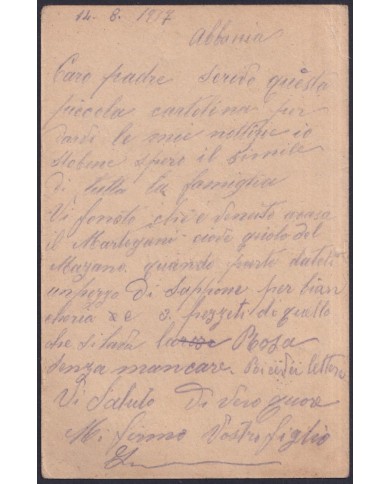 14. 8. 1917
Abbania
Caro padre scrivo questa
piccola cartolina per
darvi le mie nottizie io
stobene spero il simile
di tutta la famiglia
Vi fo noto che è venuto acasa
il
quando parte datoli
unpezzo di sappone per bian
cheria e 2. pezzeti de quello
che si lava Rosa
senza mancare. lettere
Vi Saluto di vero quore
Mi firmo Vostro figlio